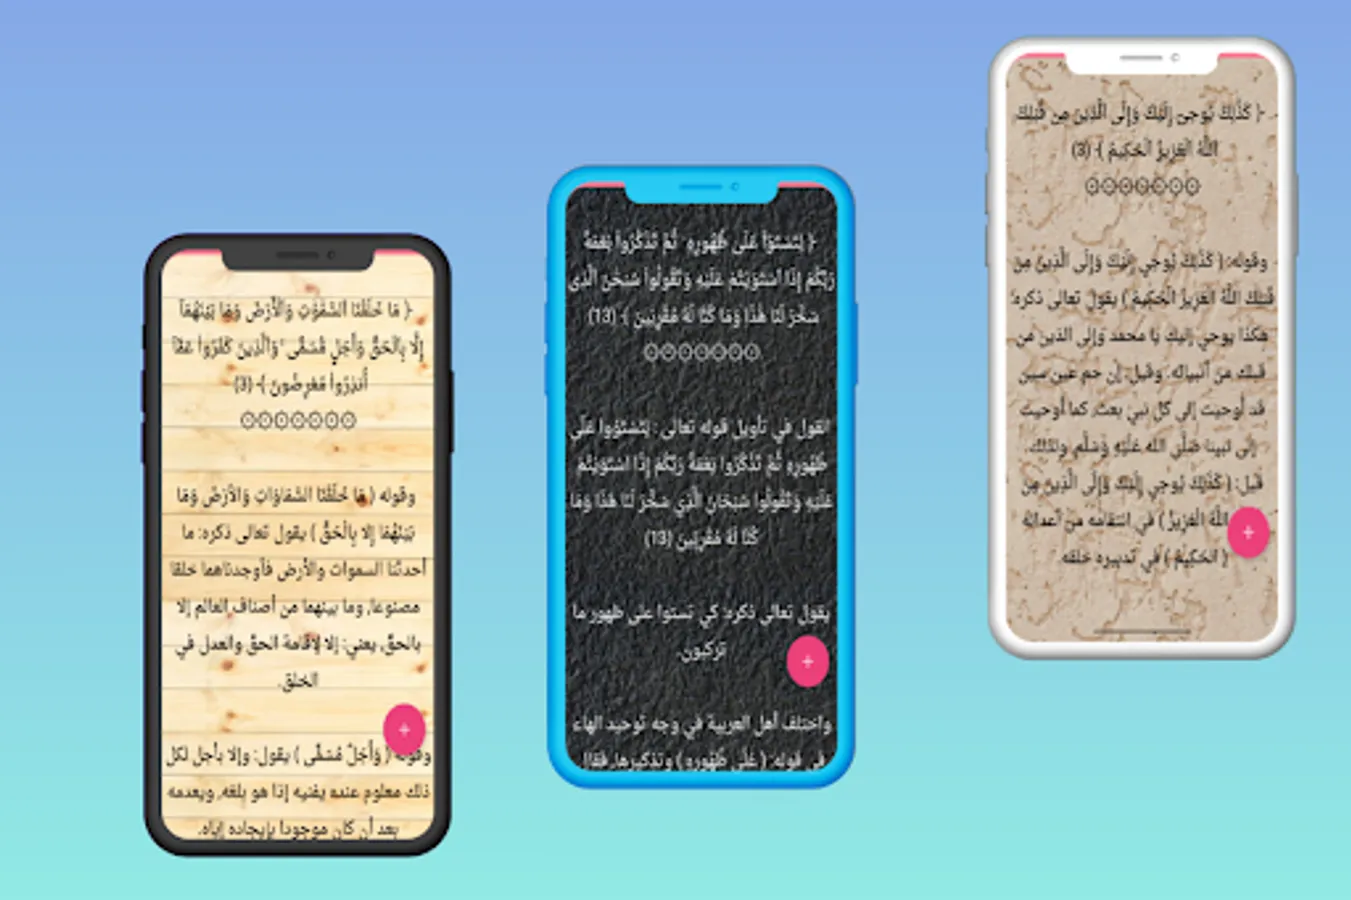 ﴿ مَا خَلَقْنَا السَّمَٰوَٰتِ وَالْأَرْضَ وَمَا بَيْنَهُمَآ
إِلَّا بِالْحَقِّ وَأَجَلٍ مُّسَمًّى ۚ وَالَّذِينَ كَفَرُوا۟ عَمَّآ
أُنذِرُوا۟ مُعْرِضُونَ ﴾- (3)
۞۞۞۞۞۞۞
وقوله ( مَا خَلَقْنَا السَّمَاوَاتِ وَالأرْضَ وَمَا
بَيْنَهُمَا إِلا بِالْحَقِّ ) يقول تعالى ذكره: ما
أحدثنا السموات والأرض فأوجدناهما خلقا
مصنوعا, وما بينهما من أصناف العالم إلا
بالحقّ, يعني: إلا لإقامة الحقّ والعدل في
الخلق.
وقوله ( وَأَجَلٌ مُسَمًّى ) يقول: وإلا بأجل لكل
ذلك معلوم عنده يفنيه إذا هو بلغه, ويعدمه
بعد أن كان موجودا بإيجاده إياه.
-﴿ لِتَسْتَوُۥا۟ عَلَىٰ ظُهُورِهِۦ ثُمَّ تَذْكُرُوا۟ نِعْمَةَ
رَبِّكُمْ إِذَا اسْتَوَيْتُمْ عَلَيْهِ وَتَقُولُوا۟ سُبْحَٰنَ الَّذِى
سَخَّرَ لَنَا هَٰذَا وَمَا كُنَّا لَهُۥ مُقْرِنِينَ ﴾- (13)
۞۞۞۞۞۞۞
القول في تأويل قوله تعالى : لِتَسْتَوُوا عَلَى
ظُهُورِهِ ثُمَّ تَذْكُرُوا نِعْمَةَ رَبِّكُمْ إِذَا اسْتَوَيْتُمْ
عَلَيْهِ وَتَقُولُوا سُبْحَانَ الَّذِي سَخَّرَ لَنَا هَذَا وَمَا
كُنَّا لَهُ مُقْرِنِينَ (13)
يقول تعالى ذكره: كي تستووا على ظهور ما
تركبون.
واختلف أهل العربية في وجه توحيد الهاء
في قوله: ( عَلَى ظُهُورِهِ ) وتذكيرها, فقال
-﴿ كَذَٰلِكَ يُوحِىٓ إِلَيْكَ وَإِلَى الَّذِينَ مِن قَبْلِكَ
اللَّهُ الْعَزِيزُ الْحَكِيمُ ﴾- (3)
۞۞۞۞۞۞۞
وقوله: ( كَذَلِكَ يُوحِي إِلَيْكَ وَإِلَى الَّذِينَ مِنْ
قَبْلِكَ اللَّهُ الْعَزِيزُ الْحَكِيمُ ) يقول تعالى ذكره:
هكذا يوحي إليك يا محمد وإلى الذين من
قبلك من أنبيائه. وقيل: إن حم عين سين
قد أوحيت إلى كل نبيّ بعث, كما أوحيت
إلى نبينا صَلَّى الله عَلَيْهِ وَسَلَّم, ولذلك.
قيل: ( كَذَلِكَ يُوحِي إِلَيْكَ وَإِلَى الَّذِينَ مِنْ
اللَّهُ الْعَزِيزُ ) في انتقامه من أعدائه
( الحَكِيمُ ) في تدبيره خلقه.
+
+
+